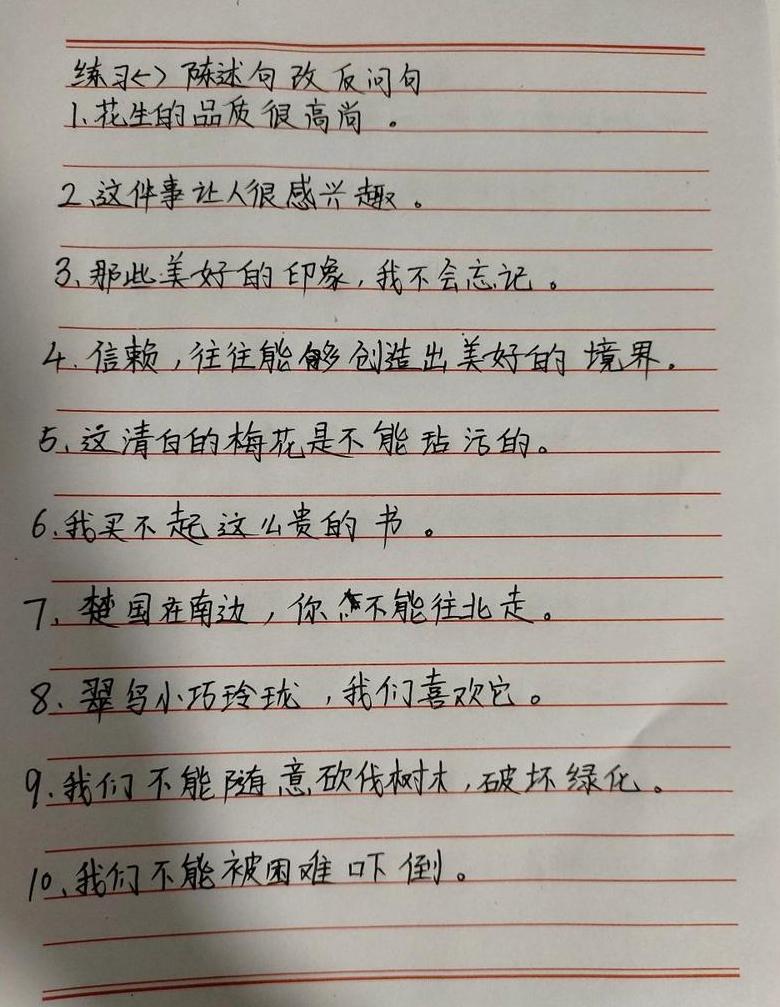 练习<> 陈述句改反问句
1、花生的品质很高尚。
2、这件事让人很感兴趣。
3、那些美好的印象,我不会忘记。
4.信赖,往往能够创造出美好的境界。
5、这清白的梅花是不能玷污的。
6.我买不起这么贵的书。
7、楚国在南边,你不能往北走。
8、翠鸟小巧玲珑,我们喜欢它。
9.我们不能随意砍伐树木,破坏绿化。
10、我们不能被困难吓倒。